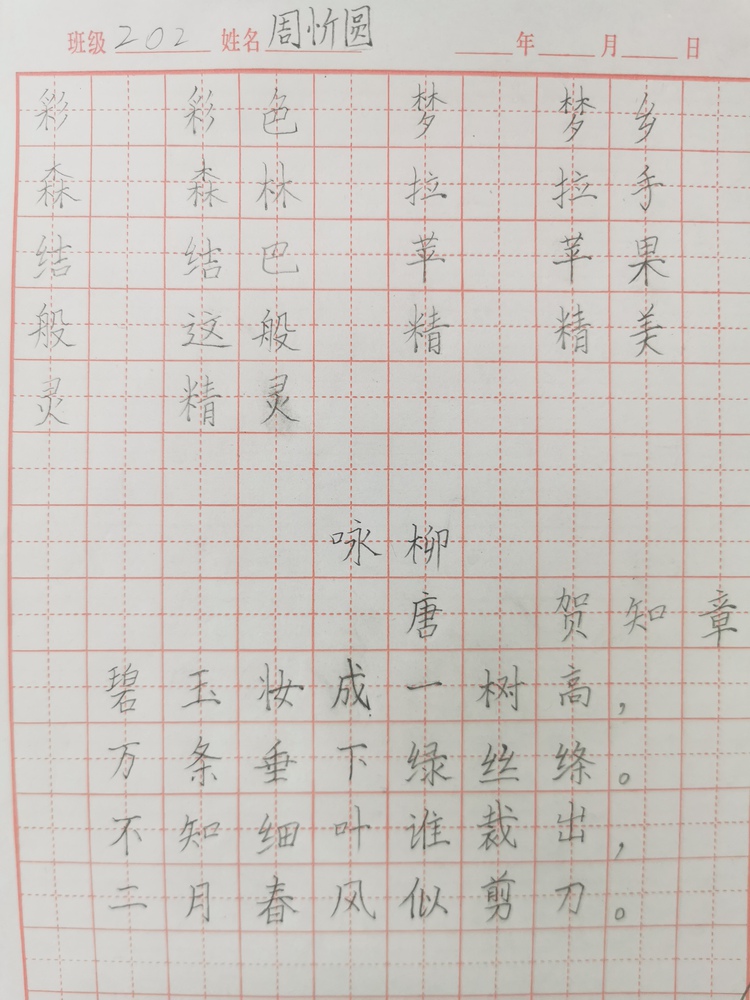 班级 202 姓名 周忻圆 年 月 日
彩 彩色 梦 梦乡
森 森林 拉 拉手
结 结巴 苹 苹果
般 这般 精 精美
灵 精灵
咏柳
唐 贺知章
碧玉妆成一树高，
万条垂下绿丝绦。
不知细叶谁裁出，
二月春风似剪刀。